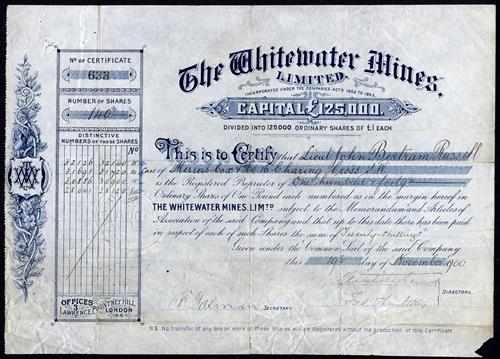 Nº OF CERTIFICATE
633
NUMBER OF SHARES
140
DISTINCTIVE
NUMBERS OF THESE SHARES
Nº
The Whitewater Mines,
LIMITED.
INCORPORATED UNDER THE COMPANIES ACTS 1862 TO 1898.
CAPITAL £125,000.
DIVIDED INTO 125000 ORDINARY SHARES OF £1 EACH
This is to Certify that Lieut John Bertram Russell
care of Messrs Cox & Co 16 Charing Cross S.W.
is the Registered Proprietor of One hundred & forty
Ordinary Shares of One Pound each numbered as in the margin hereof in
THE WHITEWATER MINES, LIMTD subject to the Memorandum and Articles of
Association of the said Company and that up to this date there has been paid
in respect of each of such Shares the sum of Twenty Shillings
Given under the Common Seal of the said Company
this 19th day of November 1900
DIRECTORS.
SECRETARY
OFFICES
3
LAWRENCE POUNTNEY HILL
LONDON
E.C.
N.B. No transfer of any one or more of these Shares will be Registered without the production of this Certificate.